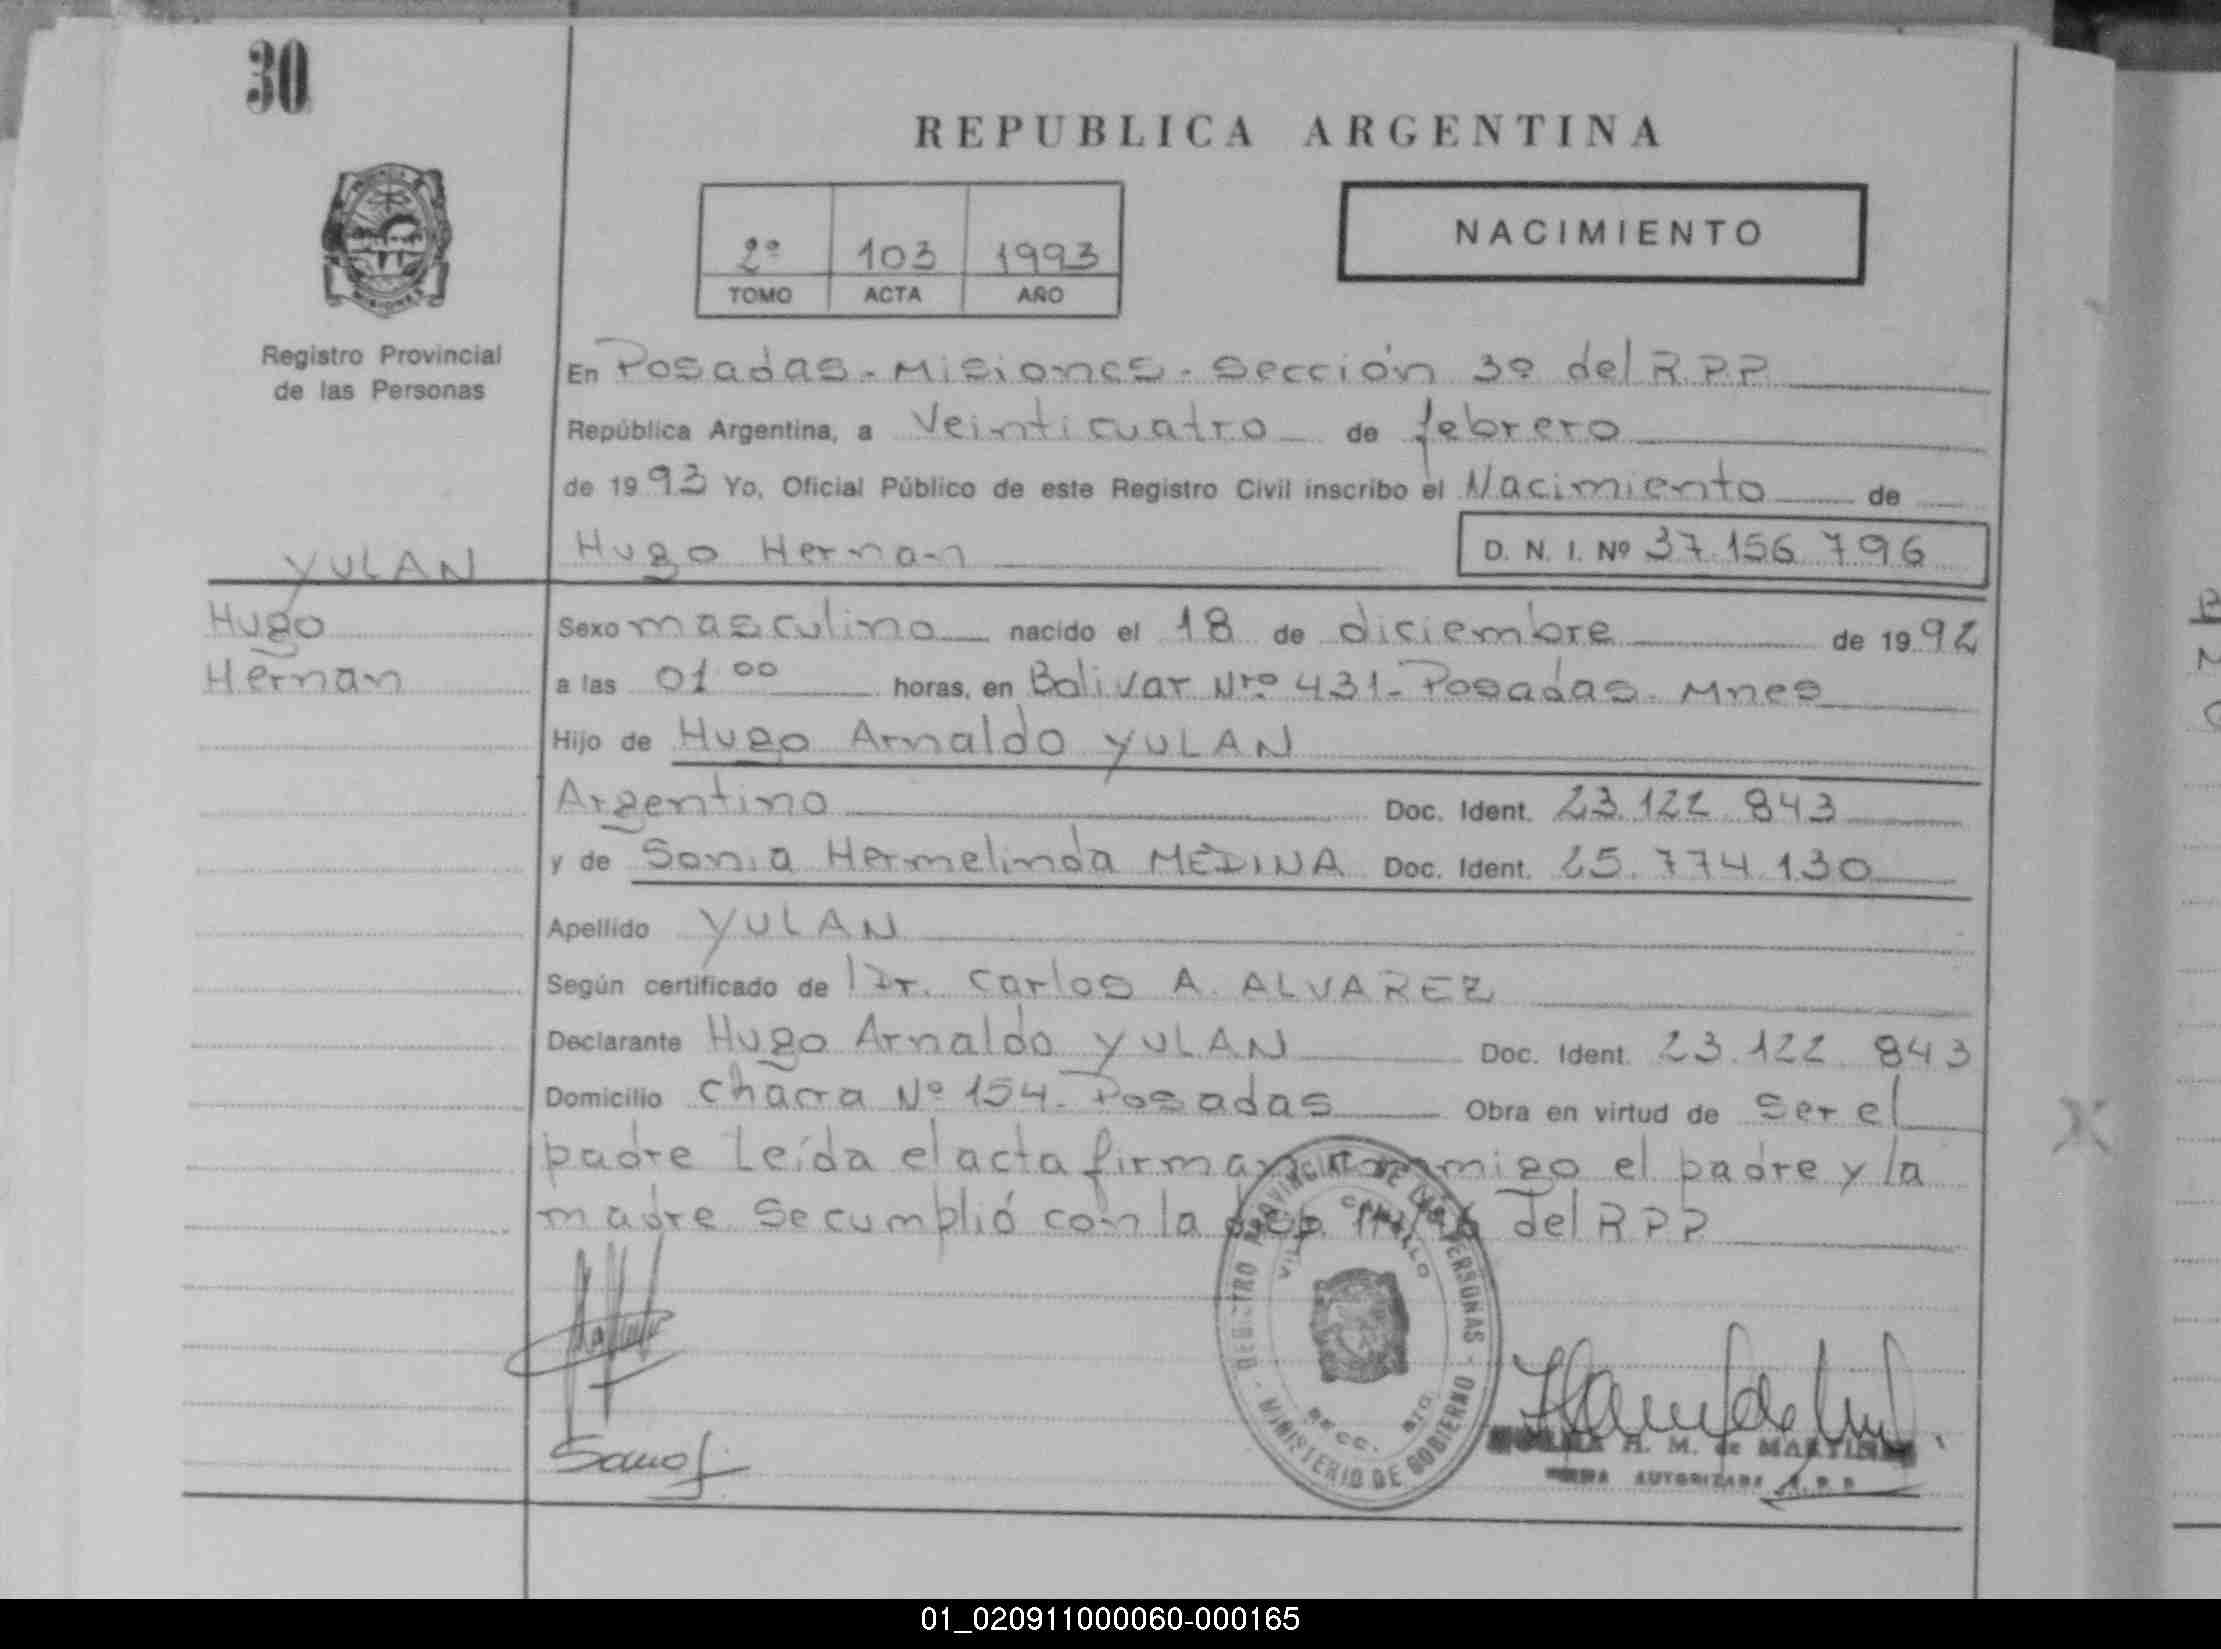 30
REPUBLICA ARGENTINA
2º 103 1993
TOMO ACTA AÑO
NACIMIENTO
MISIONES
Registro Provincial
de las Personas
En Posadas - Misiones - Sección 3º del R.P.P
República Argentina, a Veinticuatro de febrero
de 1993 Yo, Oficial Público de este Registro Civil inscribo el Nacimiento de
YULAN Hugo Hernan D. N. I. Nº 37.156.796
Hugo Sexo masculino nacido el 18 de diciembre de 1992
Hernan a las 01 00 horas, en Bolivar Nro 431 - Posadas. Mnes
Hijo de Hugo Arnaldo YULAN
Argentino Doc. Ident. 23.122.843
y de Sonia Hermelinda MEDINA Doc. Ident. 25.774.130
Apellido YULAN
Según certificado de Dr. Carlos A. ALVAREZ
Declarante Hugo Arnaldo YULAN Doc. Ident. 23.122.843
Domicilio Chacra Nº 154. Posadas Obra en virtud de ser el
padre Leída el acta firman conmigo el padre y la
madre Se cumplió con la del R P P
REGISTRO PROVINCIAL DE LAS PERSONAS - MINISTERIO DE GOBIERNO -
SECC.
H. M. de MARTINEZ
FIRMA AUTORIZADA R.P.P
01_020911000060-000165